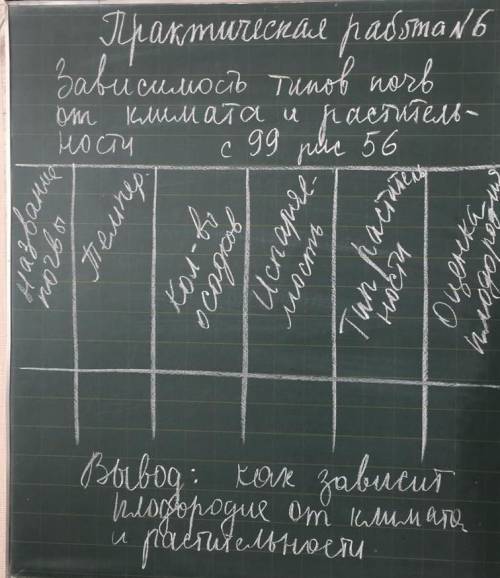 Практическая работа №6
Зависимость типов почв
от климата и раститель-
ности с 99 рис 56
Название почвы
Темпер.
Кол-во осадков
Испаряе-
мость
Тип раститель
ности
Оценка
плодороди-я
Вывод: как зависит
плодородие от климата
и растительности